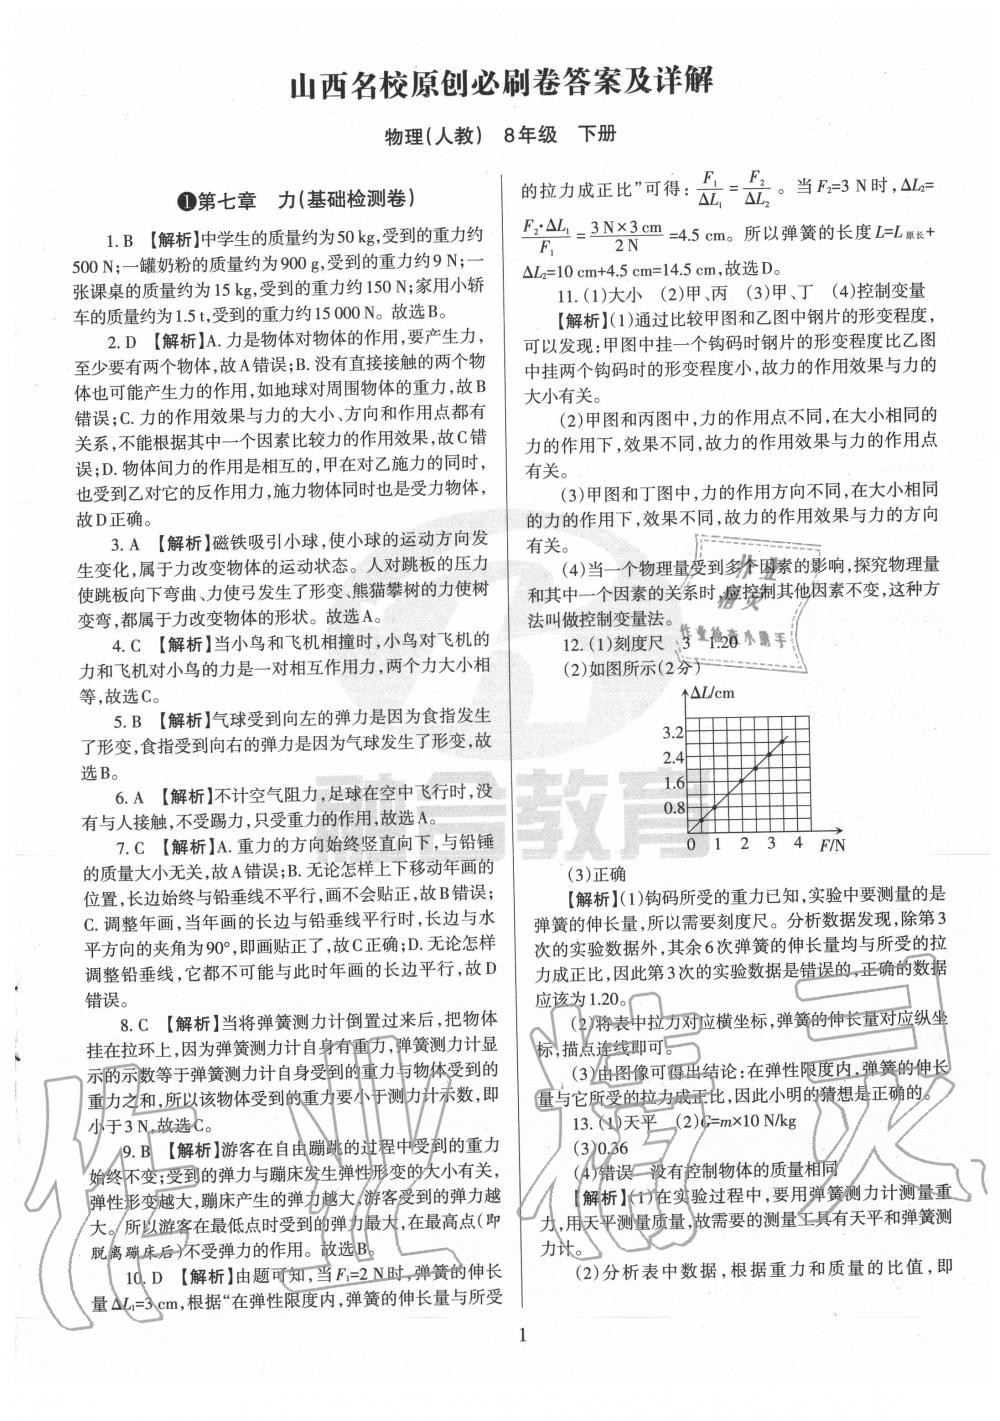 山西名校原创必刷卷答案及详解
物理(人教) 8年级 下册
❶第七章 力(基础检测卷)
1. B 【解析】中学生的质量约为50 kg,受到的重力约
500 N;一罐奶粉的质量约为900 g,受到的重力约9 N;一
张课桌的质量约为15 kg,受到的重力约150 N;家用小轿
车的质量约为1.5 t,受到的重力约15 000 N。故选B。
2. D 【解析】A. 力是物体对物体的作用,要产生力,
至少要有两个物体,故A错误;B. 没有直接接触的两个物
体也可能产生力的作用,如地球对周围物体的重力,故B
错误;C. 力的作用效果与力的大小、方向和作用点都有
关系,不能根据其中一个因素比较力的作用效果,故C错
误;D. 物体间力的作用是相互的,甲在对乙施力的同时,
也受到乙对它的反作用力,施力物体同时也是受力物体,
故D正确。
3. A 【解析】磁铁吸引小球,使小球的运动方向发
生变化,属于力改变物体的运动状态。人对跳板的压力
使跳板向下弯曲、力使弓发生了形变、熊猫攀树的力使树
变弯,都属于力改变物体的形状。故选A。
4. C 【解析】当小鸟和飞机相撞时,小鸟对飞机的
力和飞机对小鸟的力是一对相互作用力,两个力大小相
等,故选C。
5. B 【解析】气球受到向左的弹力是因为食指发生
了形变,食指受到向右的弹力是因为气球发生了形变,故
选B。
6. A 【解析】不计空气阻力,足球在空中飞行时,没
有与人接触,不受踢力,只受重力的作用,故选A。
7. C 【解析】A. 重力的方向始终竖直向下,与铅锤
的质量大小无关,故A错误;B. 无论怎样上下移动年画的
位置,长边始终与铅垂线不平行,画不会贴正,故B错误;
C. 调整年画,当年画的长边与铅垂线平行时,长边与水
平方向的夹角为90°,即画贴正了,故C正确;D. 无论怎样
调整铅垂线,它都不可能与此时年画的长边平行,故D
错误。
8. C 【解析】当将弹簧测力计倒置过来后,把物体
挂在拉环上,因为弹簧测力计自身有重力,弹簧测力计显
示的示数等于弹簧测力计自身受到的重力与物体受到的
重力之和,所以该物体受到的重力要小于测力计示数,即
小于3 N,故选C。
9. B 【解析】游客在自由蹦跳的过程中受到的重力
始终不变;受到的弹力与蹦床发生弹性形变的大小有关,
弹性形变越大,蹦床产生的弹力越大,游客受到的弹力越
大。所以游客在最低点时受到的弹力最大,在最高点(即
脱离蹦床后)不受弹力的作用。故选B。
10. D 【解析】由题可知,当F₁=2 N时,弹簧的伸长
量ΔL₁=3 cm,根据“在弹性限度内,弹簧的伸长量与所受
的拉力成正比”可得:F₁/ΔL₁=F₂/ΔL₂。当F₂=3 N时,ΔL₂=
F₂·ΔL₁/F₁=3 N×3 cm/2 N=4.5 cm。所以弹簧的长度L=L原长+
ΔL₂=10 cm+4.5 cm=14.5 cm,故选D。
11. (1)大小 (2)甲、丙 (3)甲、丁 (4)控制变量
【解析】(1)通过比较甲图和乙图中钢片的形变程度,
可以发现:甲图中挂一个钩码时钢片的形变程度比乙图
中挂两个钩码时的形变程度小,故力的作用效果与力的
大小有关。
(2)甲图和丙图中,力的作用点不同,在大小相同的
力的作用下,效果不同,故力的作用效果与力的作用点
有关。
(3)甲图和丁图中,力的作用方向不同,在大小相同
的力的作用下,效果不同,故力的作用效果与力的方向
有关。
(4)当一个物理量受到多个因素的影响,探究物理量
和其中一个因素的关系时,应控制其他因素不变,这种方
法叫做控制变量法。
12. (1)刻度尺 3 1.20
(2)如图所示(2分)
ΔL/cm
3.2
2.4
1.6
0.8
0 1 2 3 4 F/N
(3)正确
【解析】(1)钩码所受的重力已知,实验中要测量的是
弹簧的伸长量,所以需要刻度尺。分析数据发现,除第3
次的实验数据外,其余6次弹簧的伸长量均与所受的拉
力成正比,因此第3次的实验数据是错误的,正确的数据
应该为1.20。
(2)将表中拉力对应横坐标,弹簧的伸长量对应纵坐
标,描点连线即可。
(3)由图像可得出结论:在弹性限度内,弹簧的伸长
量与它所受的拉力成正比,因此小明的猜想是正确的。
13. (1)天平 (2)G=m×10 N/kg
(3)0.36
(4)错误 没有控制物体的质量相同
【解析】(1)在实验过程中,要用弹簧测力计测量重
力,用天平测量质量,故需要的测量工具有天平和弹簧测
力计。
(2)分析表中数据,根据重力和质量的比值,即
1
融合教育
作业精灵
作业检查小助手
作业精灵